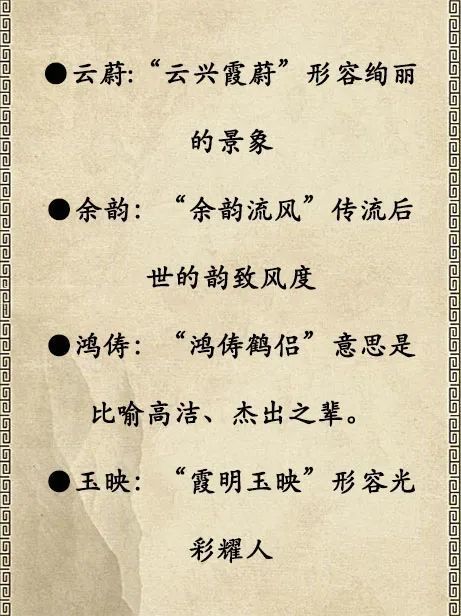 ●云蔚:“云兴霞蔚”形容绚丽
的景象
●余韵：“余韵流风”传流后
世的韵致风度
●鸿俦：“鸿俦鹤侣”意思是
比喻高洁、杰出之辈。
●玉映：“霞明玉映”形容光
彩耀人